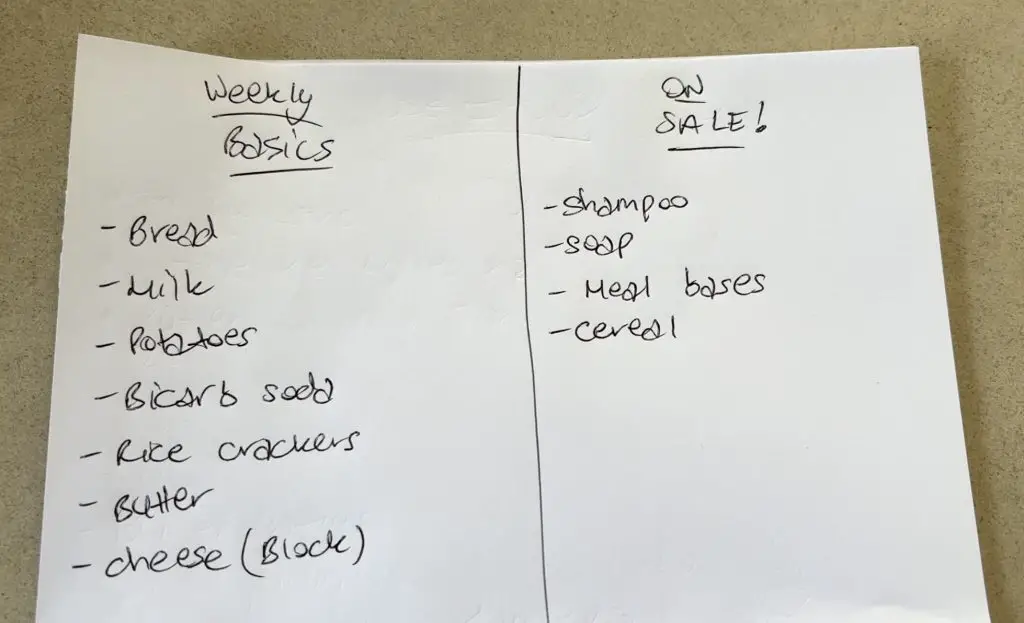 Weekly
Basics
- Bread
- Milk
- Potatoes
- Bicarb soda
- Rice crackers
- Butter
- cheese (Block)
ON
SALE!
- Shampoo
- soap
- Meal bases
- cereal